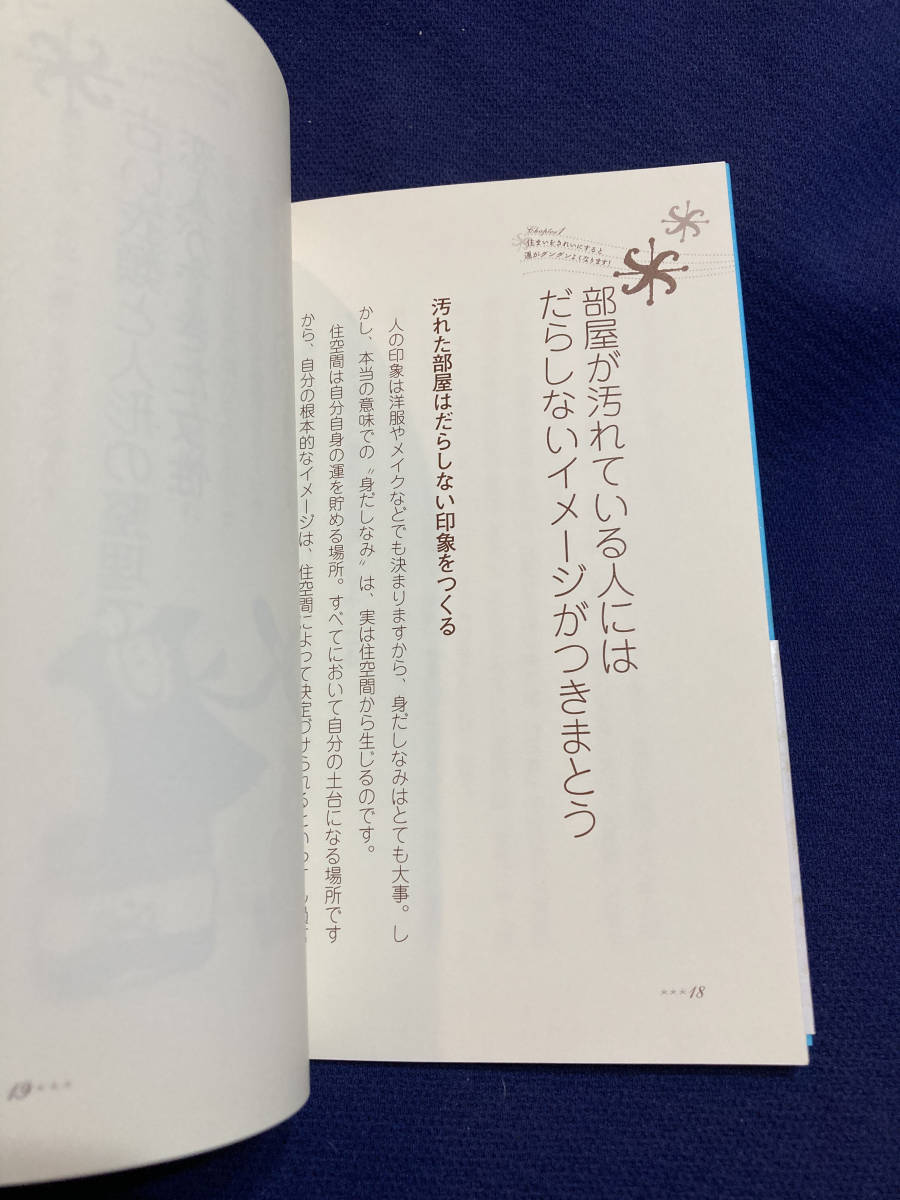 Chapter1
住まいをきれいにすると
運がグングンよくなります!
部屋が汚れている人には
だらしないイメージがつきまとう
汚れた部屋はだらしない印象をつくる
人の印象は洋服やメイクなどでも決まりますから、身だしなみはとても大事。し
かし、本当の意味での〝身だしなみ〟は、実は住空間から生じるのです。
住空間は自分自身の運を貯める場所。すべてにおいて自分の土台になる場所です
から、自分の根本的なイメージは、住空間によって決定づけられるといっ
***18
19***